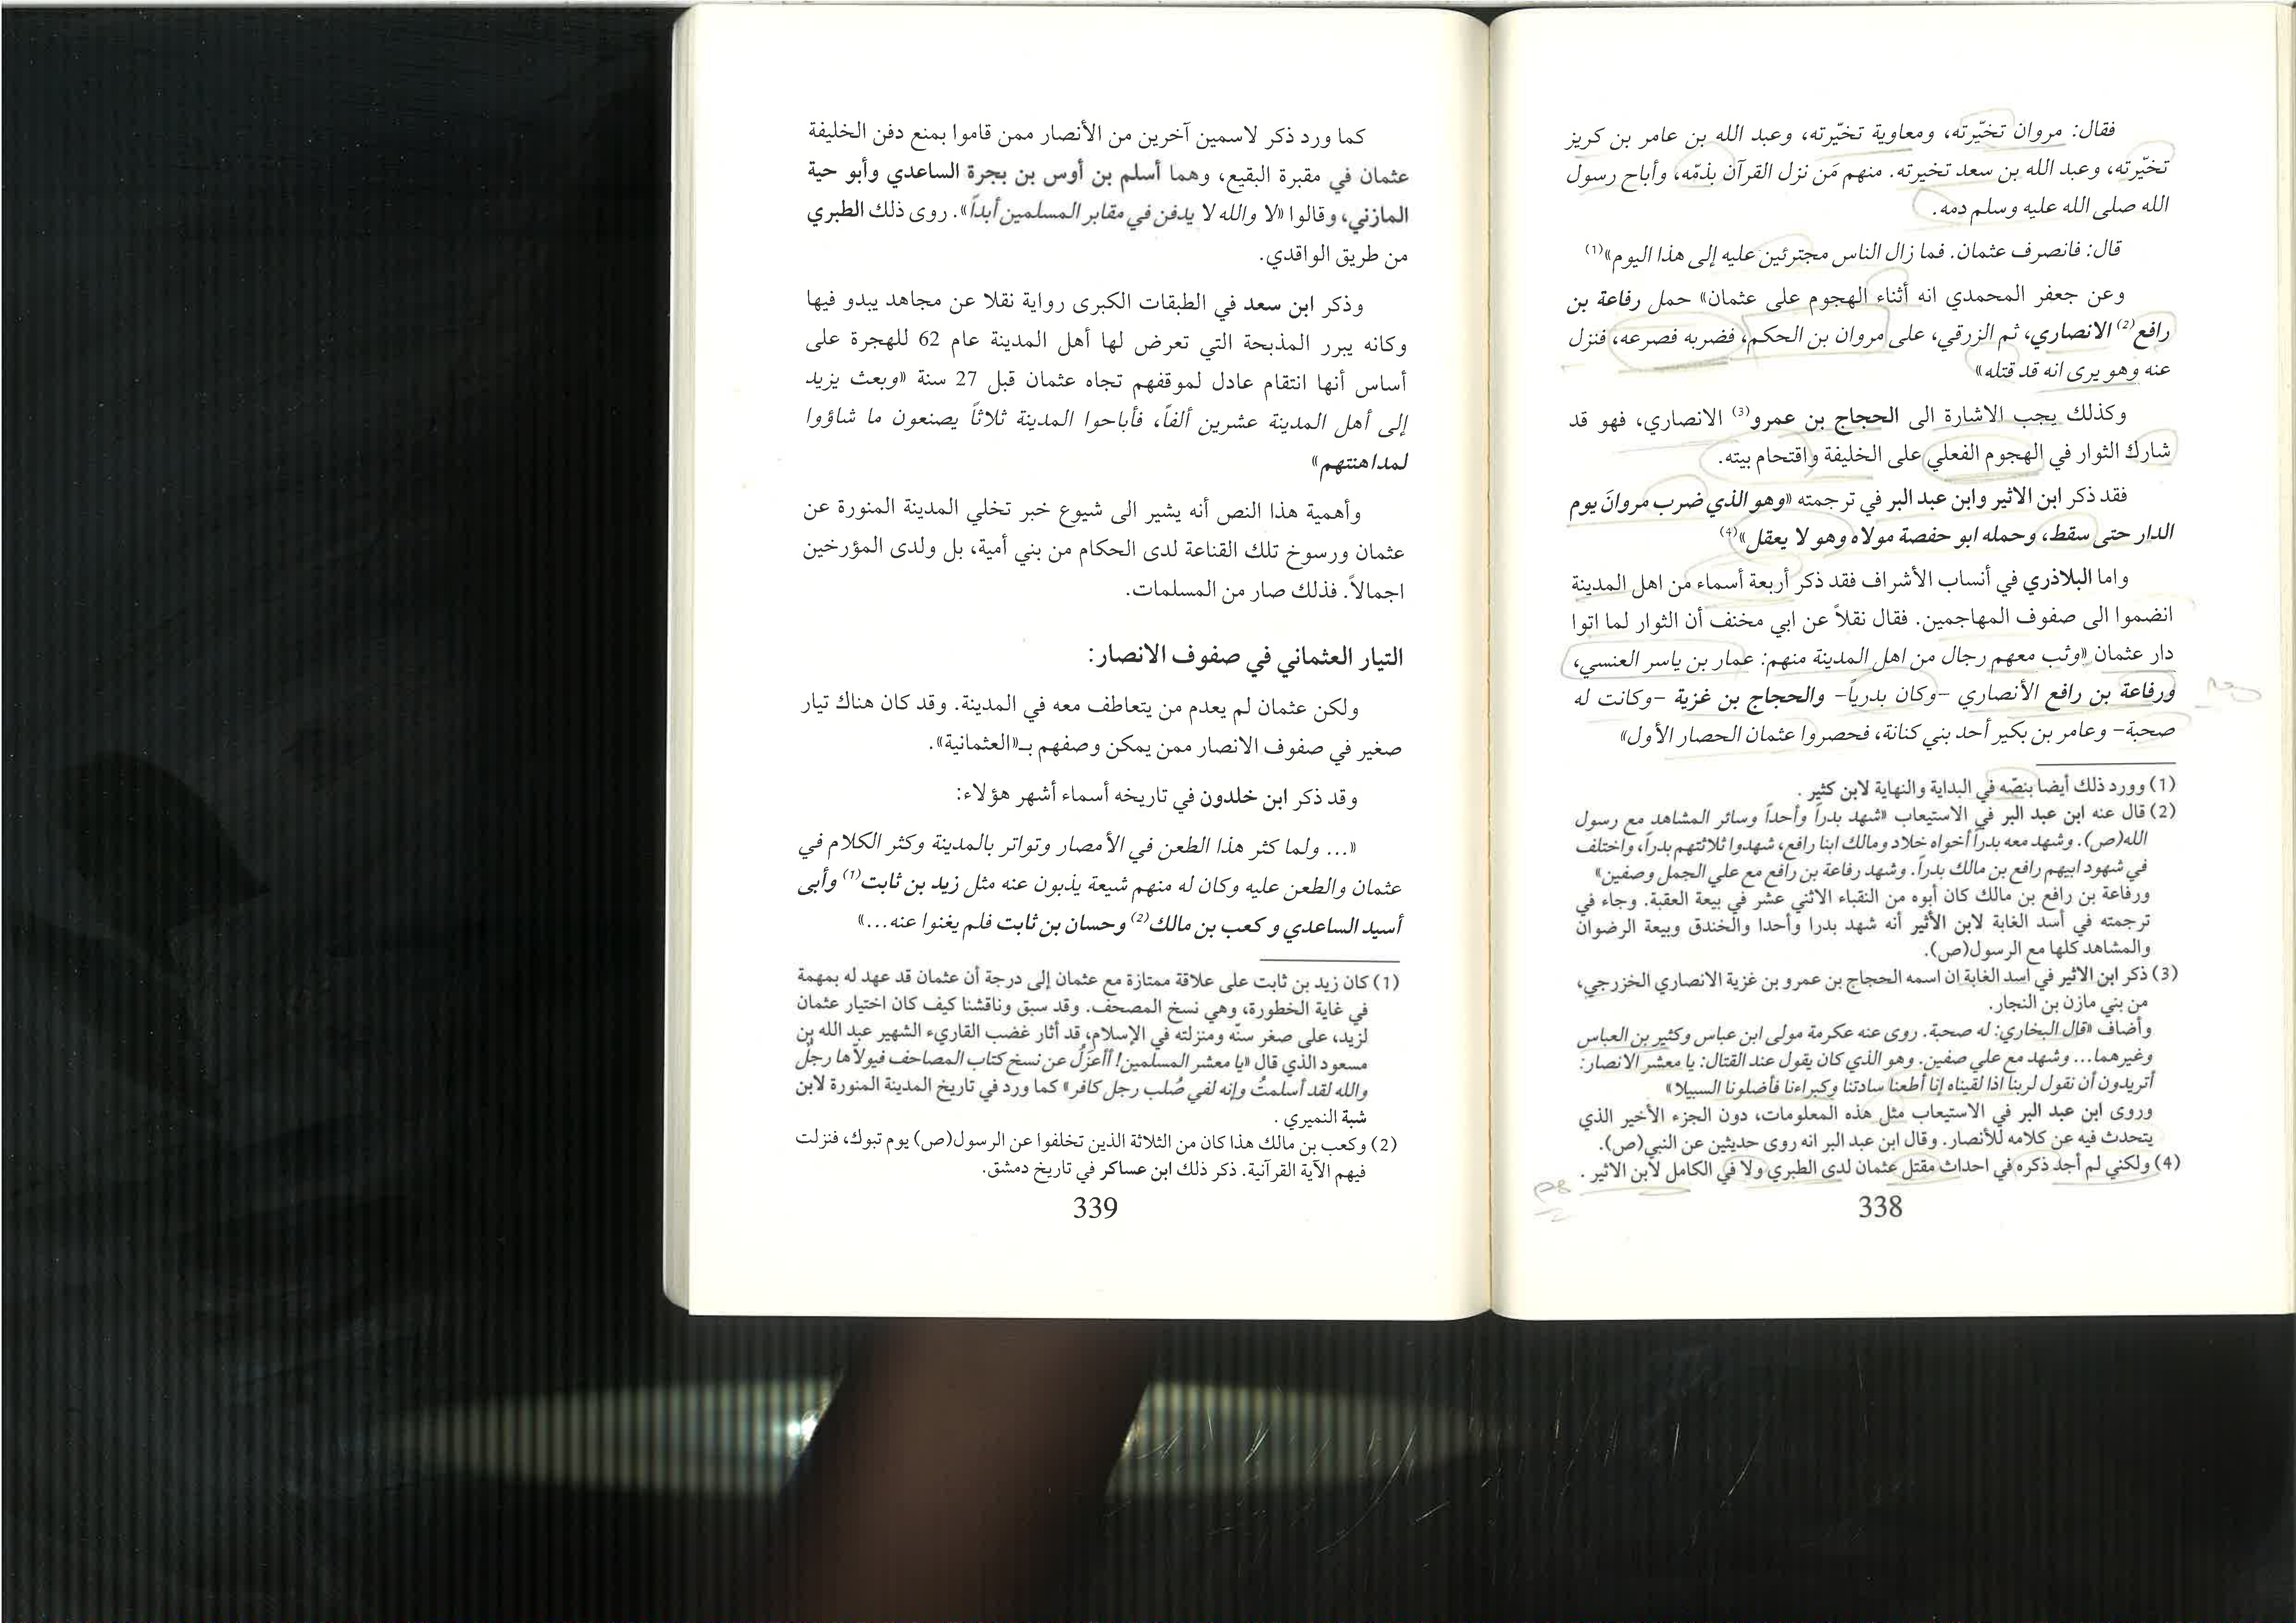 فقال: مروان تخيّرته، ومعاوية تخيّرته، وعبد الله بن عامر بن كريز
تخيّرته، وعبد الله بن سعد تخيرته. منهم مَن نزل القرآن بذمّه، وأباح رسول
الله صلى الله عليه وسلم دمه.
قال: فانصرف عثمان. فما زال الناس مجترئين عليه إلى هذا اليوم»(1)
وعن جعفر المحمدي انه أثناء الهجوم على عثمان» حمل رفاعة بن
رافع(2) الانصاري، ثم الزرقي، على مروان بن الحكم، فضربه فصرعه، فنزل
عنه وهو يرى انه قد قتله»
وكذلك يجب الاشارة الى الحجاج بن عمرو(3) الانصاري، فهو قد
شارك الثوار في الهجوم الفعلي على الخليفة واقتحام بيته.
فقد ذكر ابن الاثير وابن عبد البر في ترجمته «وهو الذي ضرب مروانَ يوم
الدار حتى سقط، وحمله ابو حفصة مولاه وهو لا يعقل»(4)
واما البلاذري في أنساب الأشراف فقد ذكر أربعة أسماء من اهل المدينة
انضموا الى صفوف المهاجمين. فقال نقلاً عن ابي مخنف أن الثوار لما اتوا
دار عثمان «وثب معهم رجال من اهل المدينة منهم: عمار بن ياسر العنسي،
ورفاعة بن رافع الأنصاري -وكان بدرياً- والحجاج بن غزية -وكانت له
صحبة- وعامر بن بكير أحد بني كنانة، فحصروا عثمان الحصار الأول»
(1) وورد ذلك أيضا بنصّه في البداية والنهاية لابن كثير .
(2) قال عنه ابن عبد البر في الاستيعاب «شهد بدراً وأحداً وسائر المشاهد مع رسول
الله(ص). وشهد معه بدراً أخواه خلاد ومالك ابنا رافع، شهدوا ثلاثتهم بدراً، واختلف
في شهود ابيهم رافع بن مالك بدراً. وشهد رفاعة بن رافع مع علي الجمل وصفين»
ورفاعة بن رافع بن مالك كان أبوه من النقباء الاثني عشر في بيعة العقبة. وجاء في
ترجمته في أسد الغابة لابن الأثير أنه شهد بدرا وأحدا والخندق وبيعة الرضوان
والمشاهد كلها مع الرسول(ص).
(3) ذكر ابن الاثير في اسد الغابة ان اسمه الحجاج بن عمرو بن غزية الانصاري الخزرجي،
من بني مازن بن النجار.
وأضاف «قال البخاري: له صحبة. روى عنه عكرمة مولى ابن عباس وكثير بن العباس
وغيرهما... وشهد مع علي صفين. وهو الذي كان يقول عند القتال: يا معشر الانصار:
أتريدون أن نقول لربنا اذا لقيناه إنا أطعنا سادتنا وكبراءنا فأضلونا السبيلا»
وروى ابن عبد البر في الاستيعاب مثل هذه المعلومات، دون الجزء الأخير الذي
يتحدث فيه عن كلامه للأنصار. وقال ابن عبد البر انه روى حديثين عن النبي(ص).
(4) ولكني لم أجد ذكره في احداث مقتل عثمان لدى الطبري ولا في الكامل لابن الاثير .
338
كما ورد ذكر لاسمين آخرين من الأنصار ممن قاموا بمنع دفن الخليفة
عثمان في مقبرة البقيع، وهما أسلم بن أوس بن بجرة الساعدي وأبو حية
المازني، وقالوا «لا والله لا يدفن في مقابر المسلمين أبداً». روى ذلك الطبري
من طريق الواقدي.
وذكر ابن سعد في الطبقات الكبرى رواية نقلا عن مجاهد يبدو فيها
وكانه يبرر المذبحة التي تعرض لها أهل المدينة عام 62 للهجرة على
أساس أنها انتقام عادل لموقفهم تجاه عثمان قبل 27 سنة «وبعث يزيد
إلى أهل المدينة عشرين ألفاً، فأباحوا المدينة ثلاثاً يصنعون ما شاؤوا
لمداهنتهم»
وأهمية هذا النص أنه يشير الى شيوع خبر تخلي المدينة المنورة عن
عثمان ورسوخ تلك القناعة لدى الحكام من بني أمية، بل ولدى المؤرخين
اجمالاً. فذلك صار من المسلمات.
التيار العثماني في صفوف الانصار:
ولكن عثمان لم يعدم من يتعاطف معه في المدينة. وقد كان هناك تيار
صغير في صفوف الانصار ممن يمكن وصفهم بـ«العثمانية».
وقد ذكر ابن خلدون في تاريخه أسماء أشهر هؤلاء:
«... ولما كثر هذا الطعن في الأمصار وتواتر بالمدينة وكثر الكلام في
عثمان والطعن عليه وكان له منهم شيعة يذبون عنه مثل زيد بن ثابت(1) وأبى
أسيد الساعدي و كعب بن مالك(2) وحسان بن ثابت فلم يغنوا عنه...»
(1) كان زيد بن ثابت على علاقة ممتازة مع عثمان إلى درجة أن عثمان قد عهد له بمهمة
في غاية الخطورة، وهي نسخ المصحف. وقد سبق وناقشنا كيف كان اختيار عثمان
لزيد، على صغر سنّه ومنزلته في الإسلام، قد أثار غضب القاريء الشهير عبد الله بن
مسعود الذي قال «يا معشر المسلمين! أأعزَلُ عن نسخ كتاب المصاحف فيولاّها رجلٌ
والله لقد أسلمتُ وإنه لفي صُلب رجل كافر» كما ورد في تاريخ المدينة المنورة لابن
شبة النميري .
(2) وكعب بن مالك هذا كان من الثلاثة الذين تخلفوا عن الرسول(ص) يوم تبوك، فنزلت
فيهم الآية القرآنية. ذكر ذلك ابن عساكر في تاريخ دمشق.
339